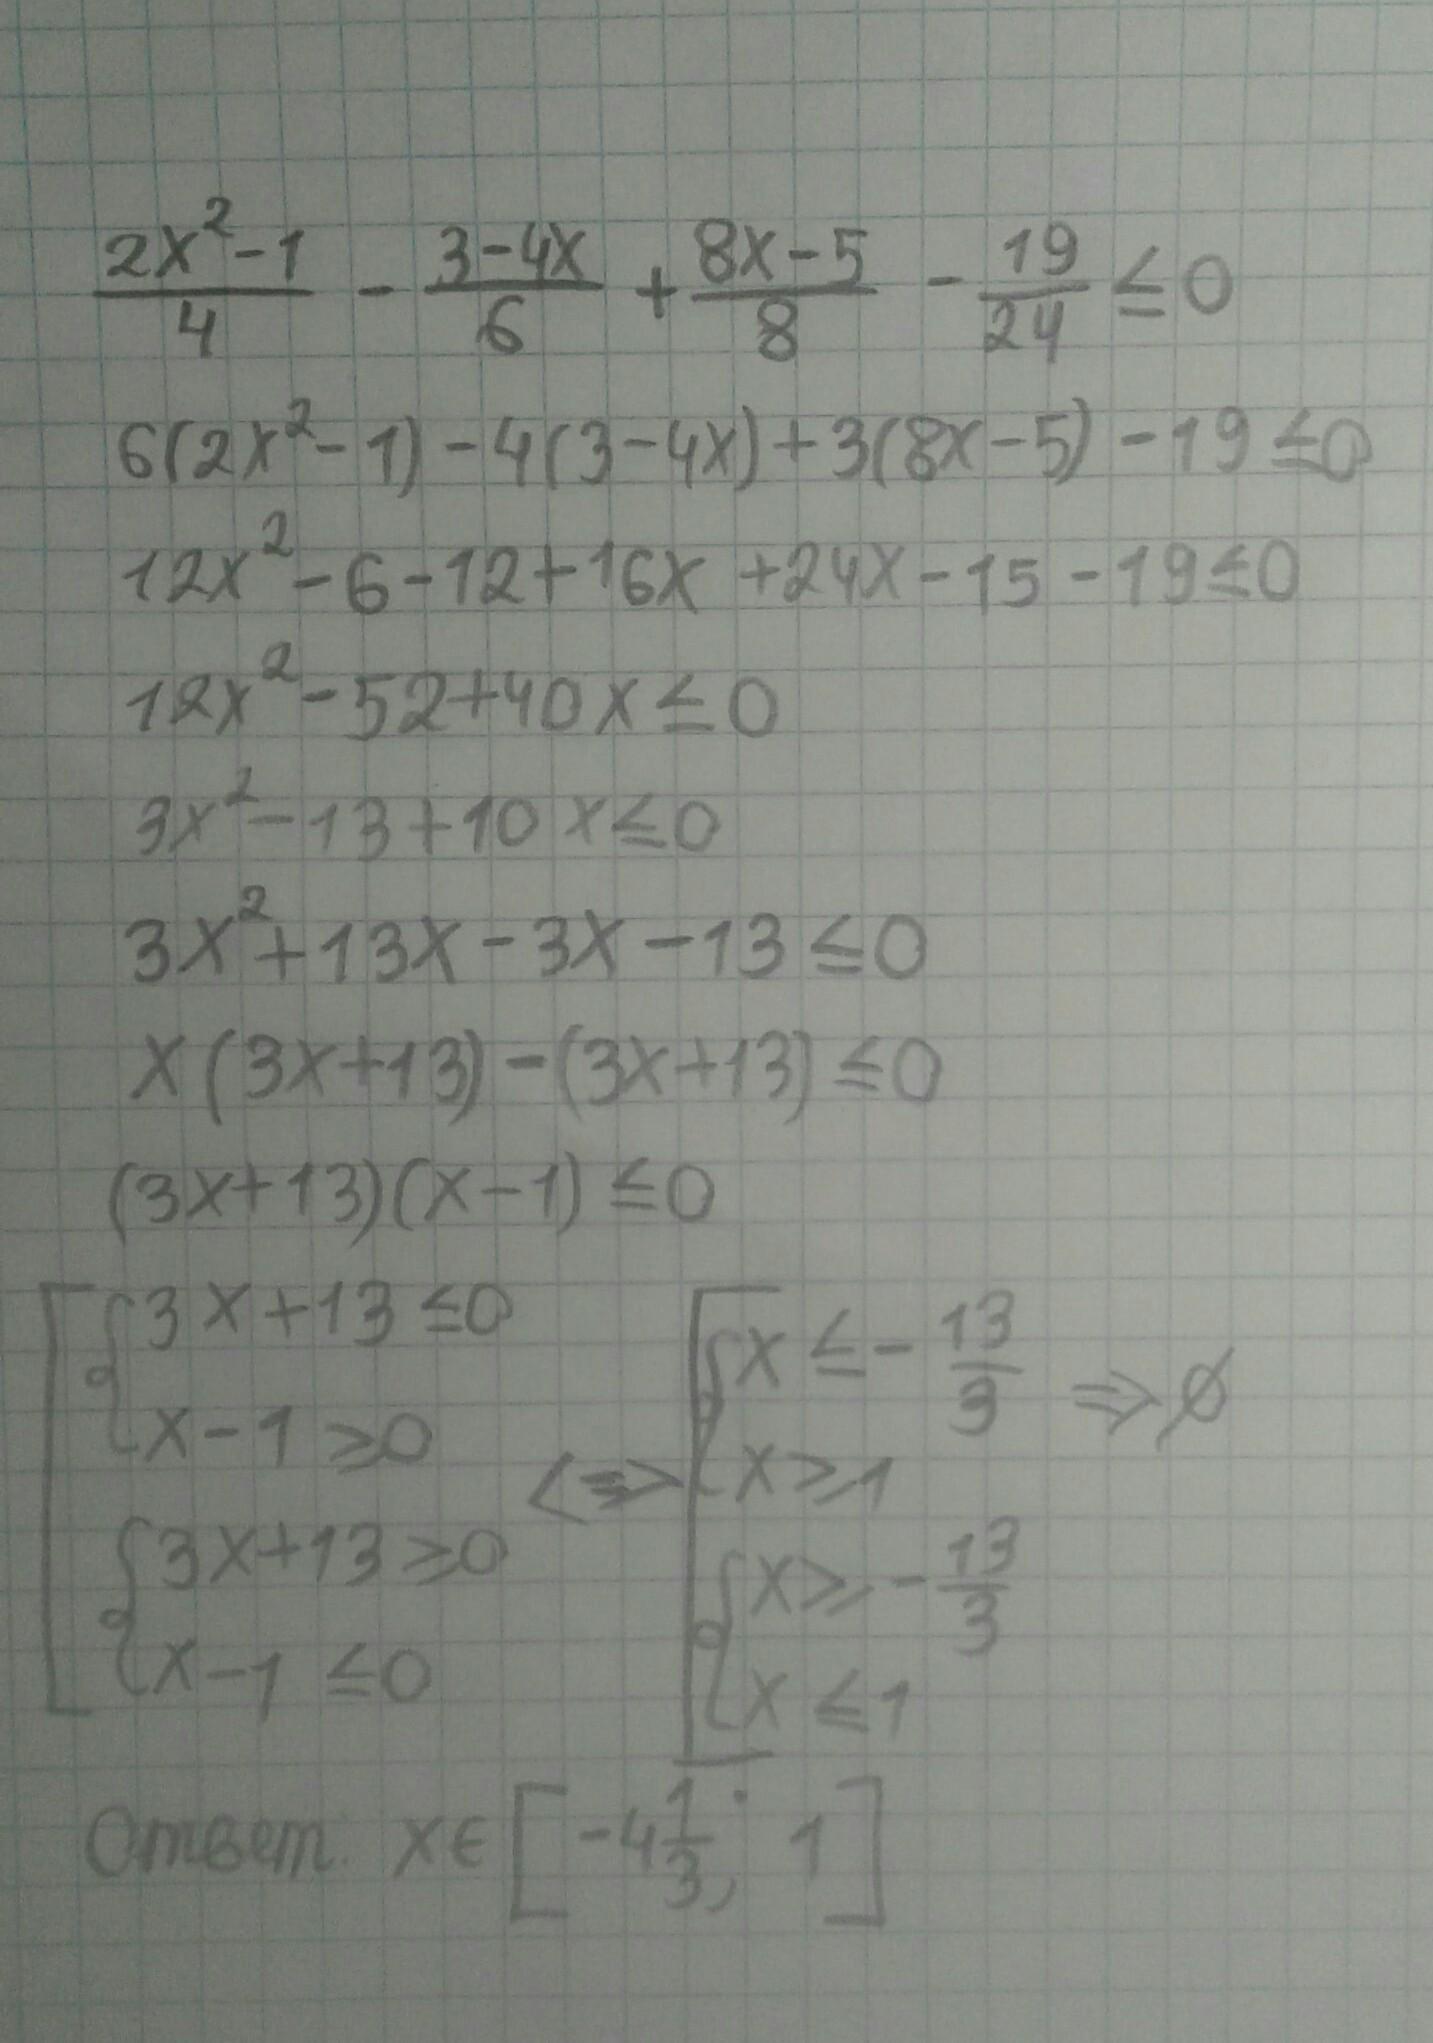 (2x²-1)/4 - (3-4x)/6 + (8x-5)/8 - 19/24 ≤ 0
6(2x²-1)-4(3-4x)+3(8x-5)-19≤0
12x²-6-12+16x+24x-15-19≤0
12x²-52+40x≤0
3x²-13+10x≤0
3x²+13x-3x-13≤0
x(3x+13)-(3x+13)≤0
(3x+13)(x-1)≤0
[ { 3x+13≤0 <=> [ { x≤-13/3 => ∅
x-1≥0 x≥1
{ 3x+13≥0 { x≥-13/3
x-1≤0 x≤1
Ответ: x∈[-4 1/3; 1]